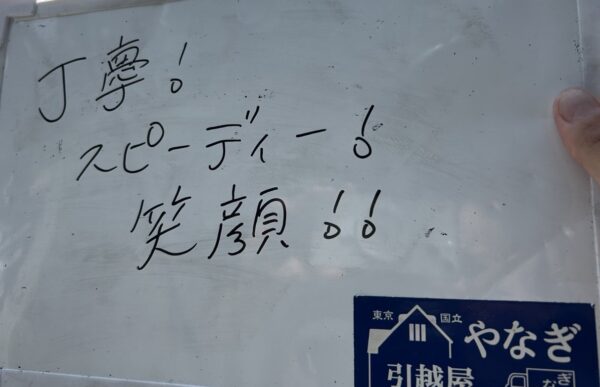 丁寧!
スピーディー!
笑顔!!
東京 国立 やなぎ
引越屋 なぎ